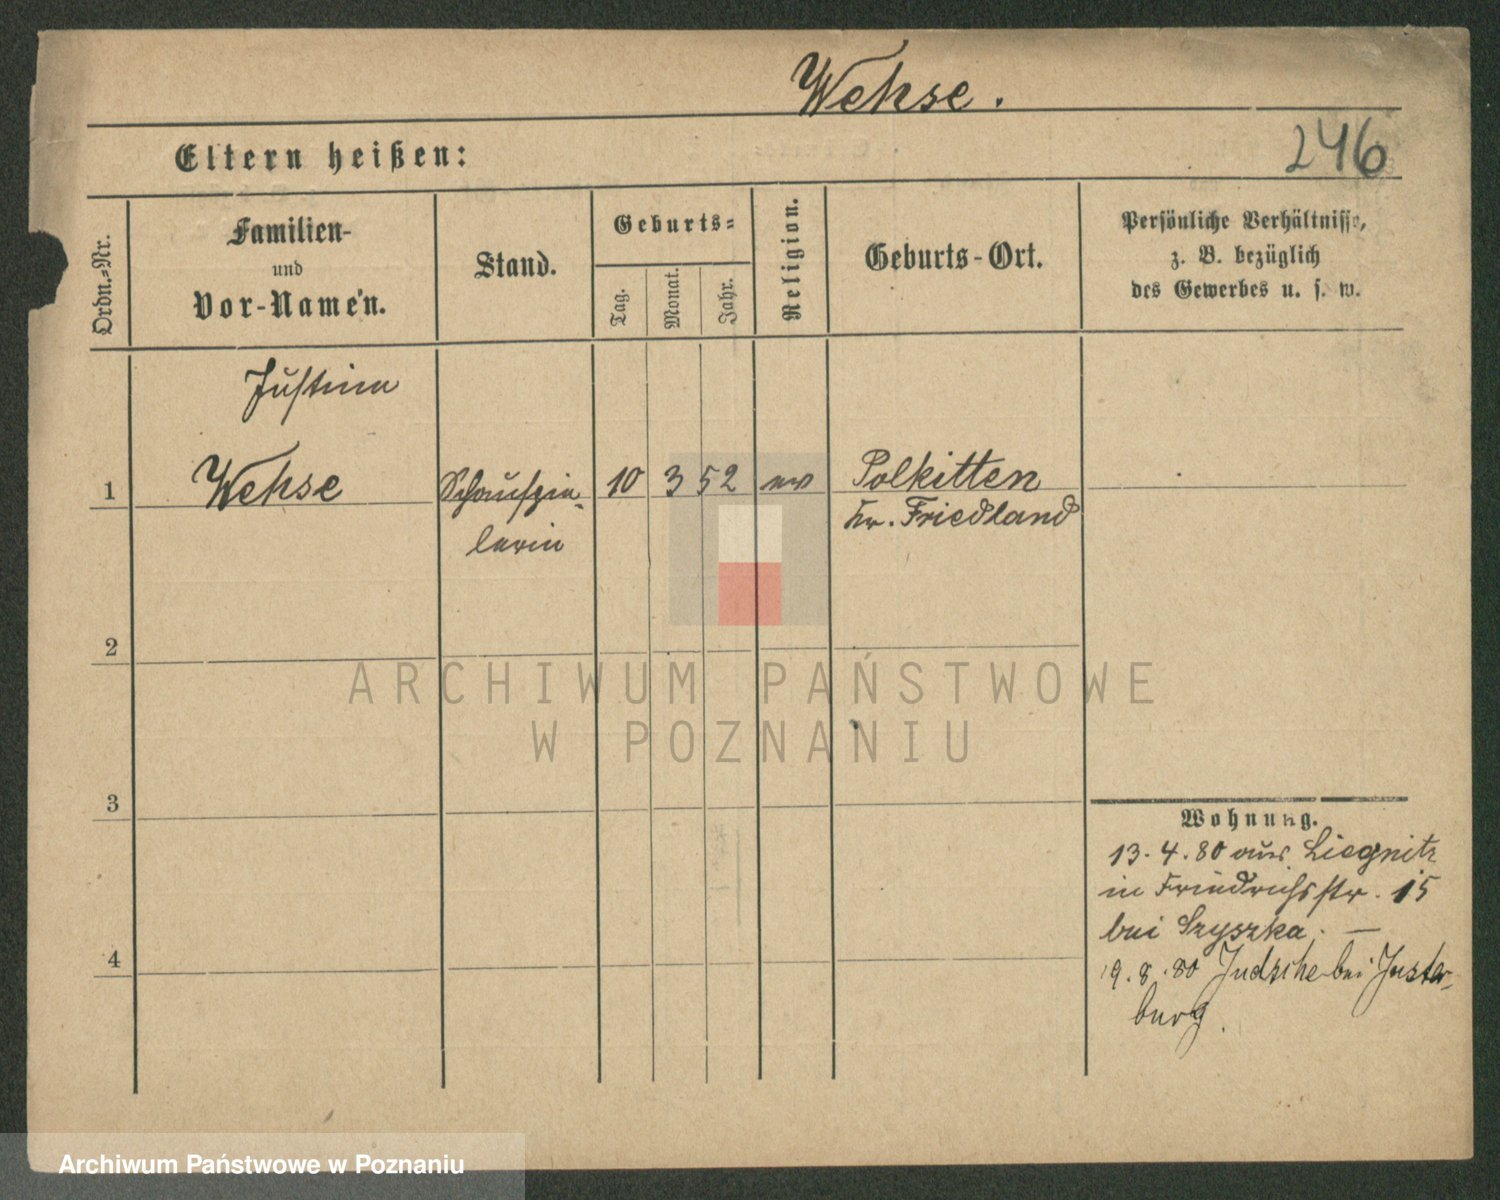 Wehse.
Eltern heißen:
246
Ordn.-Nr.
Familien-
und
Vor-Namen.
Stand.
Geburts-
Tag.
Monat.
Jahr.
Religion.
Geburts-Ort.
Persönliche Verhältnisse,
z. B. bezüglich
des Gewerbes u. s. w.
Justine
1 Wehse Schauspie- 10 3 52 ev Polkitten
lerin Kr. Friedland
2
ARCHIWUM PAŃSTWOWE
W POZNANIU
3
Wohnung.
13.4.80 aus Liegnitz
in Friedrichsstr. 15
bei Szyszka. —
4
19.8.80 Judschen bei Inster-
burg.
Archiwum Państwowe w Poznaniu